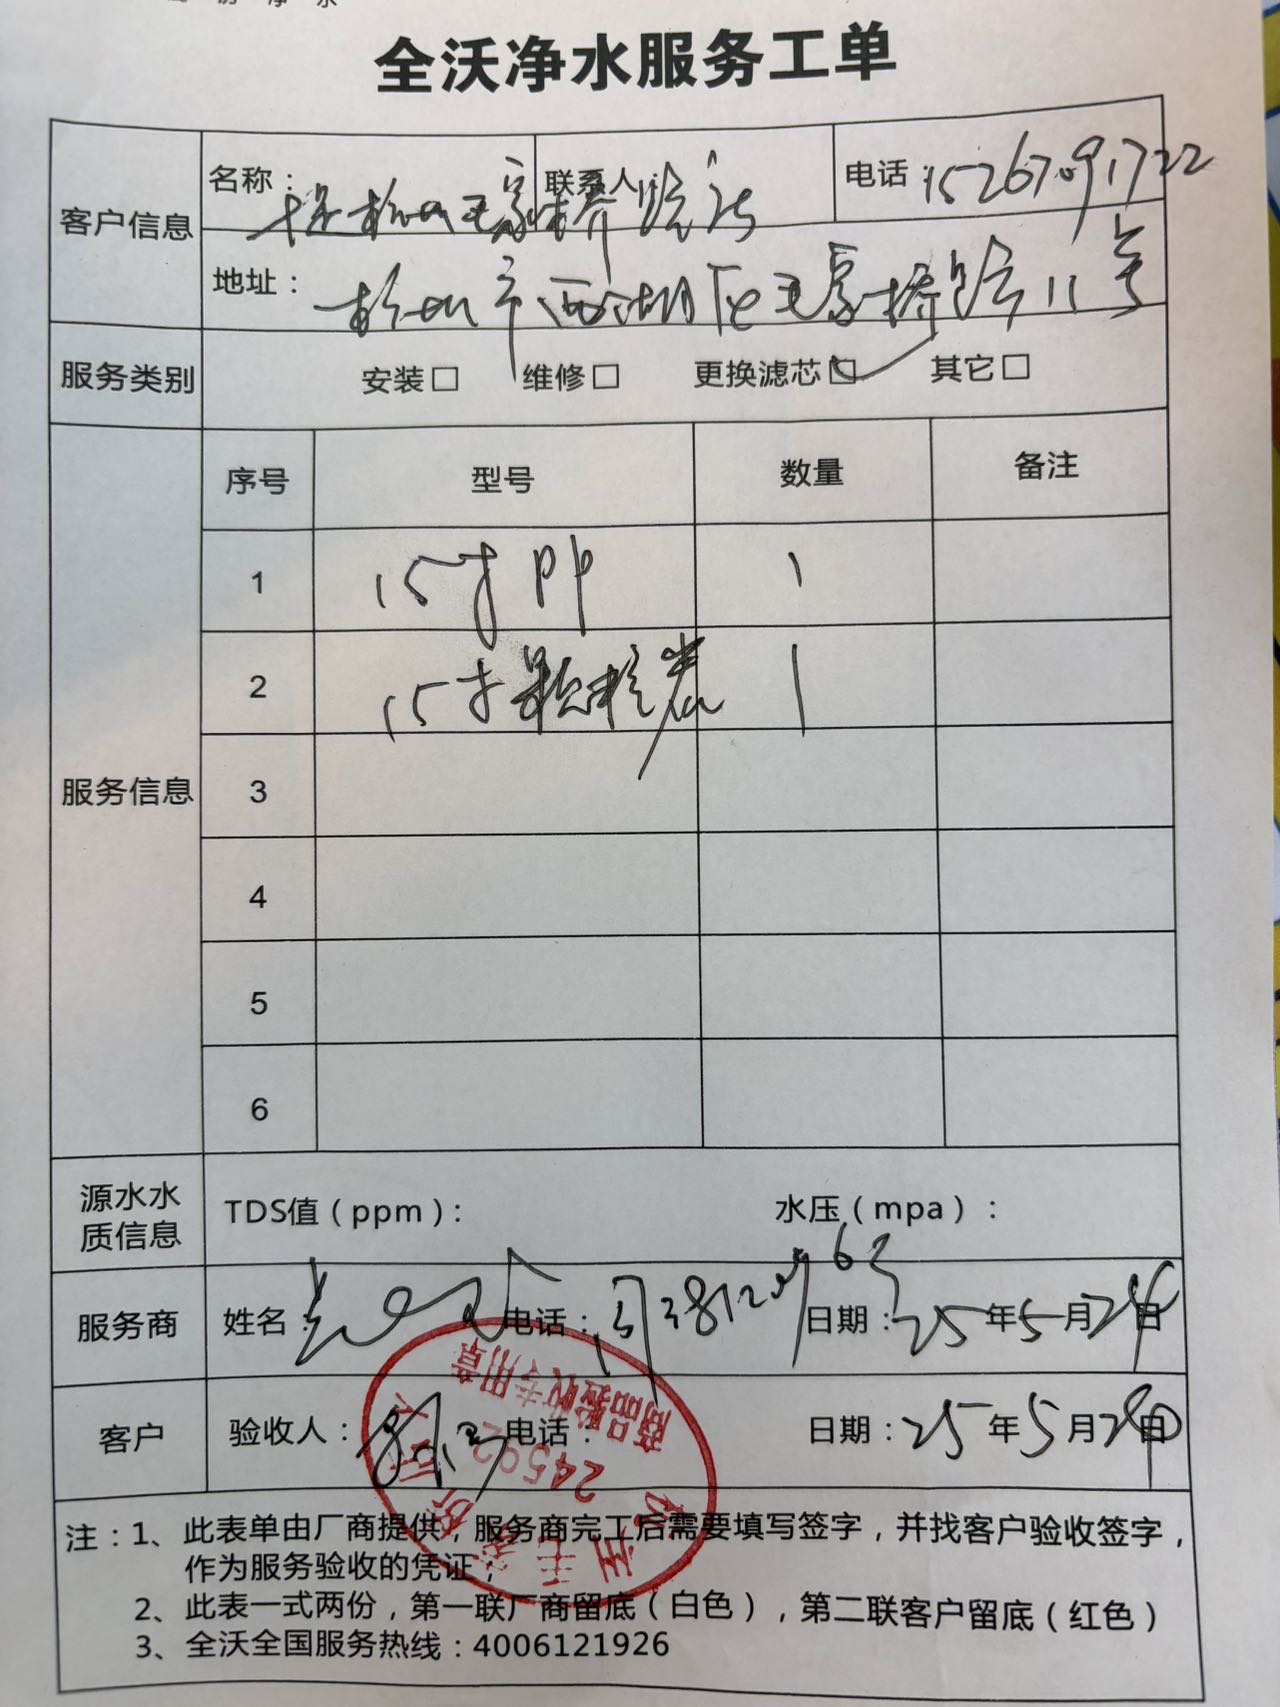 全沃净水服务工单
客户信息
名称：
联系人：
电话：15267091722
地址：杭州市西湖区毛家桥路11号
服务类别 安装□ 维修□ 更换滤芯□ 其它□
服务信息
序号 型号 数量 备注
1 15寸PP 1
2 15寸颗粒炭 1
3
4
5
6
源水水质信息 TDS值（ppm）： 水压（mpa）：
服务商 姓名： 电话： 日期：25年5月24日
客户 验收人： 电话： 日期：25年5月24日
商品验收专用章
24592
注：1、此表单由厂商提供，服务商完工后需要填写签字，并找客户验收签字，
作为服务验收的凭证；
2、此表一式两份，第一联厂商留底（白色），第二联客户留底（红色）
3、全沃全国服务热线：4006121926